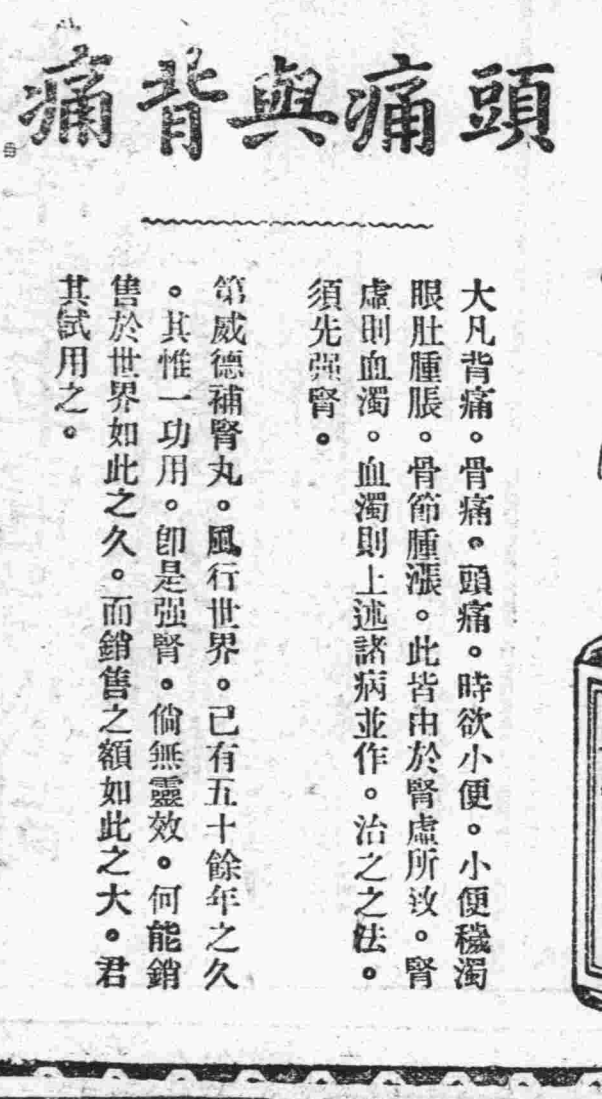 頭痛與背痛
大凡背痛。骨痛。頭痛。時欲小便。小便穢濁
眼肚腫脹。骨節腫漲。此皆由於腎虛所致。腎
虛則血濁。血濁則上述諸病並作。治之之法。
須先强腎。
第威德補腎丸。風行世界。已有五十餘年之久
。其惟一功用。卽是强腎。倘無靈效。何能銷
售於世界如此之久。而銷售之額如此之大。君
其試用之。